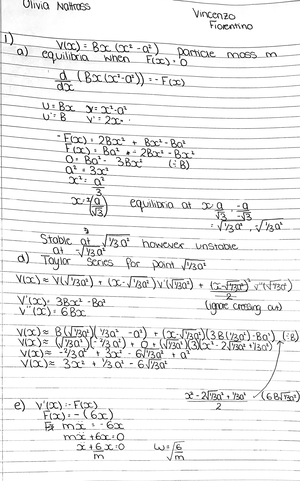 Olivia Nattrass
Vincenzo
Fiorentino
1)
V(x) = Bx (x² - a²) particle mass m
a) equilibria when F(x) = 0
d/dx (Bx(x²-a²)) = -F(x)
U = Bx V = x²-a²
U' = B V' = 2x
-F(x) = 2Bx² + Bx² - Ba²
F(x) = Ba² - 2Bx² - Bx²
0 = Ba² - 3Bx² (÷B)
a² = 3x²
x² = a²/3
x = a/√3 equilibria at x a/√3 -a/√3
= √⅓a², √⅓a²
Stable at √⅓a² however unstable
at -√⅓a²
d) Taylor series for point √⅓a²
V(x) ≈ V(√⅓a²) + (x-√⅓a²)V'(√⅓a²) + (x-√⅓a²)²/2 V''(√⅓a²)
V'(x) = 3Bx² - Ba² (ignore crossing out)
V''(x) = 6Bx
V(x) ≈ B(√⅓a²)(⅓a² - a²) + (x-√⅓a²)(3B(⅓a²) - Ba²) (÷B)
V(x) ≈ (√⅓a²)(-⅔a²) + 0 + (√⅓a²)(3)(x² - 2√⅓a² + ⅓a²)
V(x) ≈ -⅔a² + 3x² - 6√⅓a² + a²
V(x) ≈ 3x² + ⅓a² - 6√⅓a²
x² - 2√⅓a² + ⅓a² / 2 (6B√⅓a²)
e) V'(x) = -F(x)
F(x) = -(6x)
mẍ = -6x
mẍ + 6x = 0
ẍ + 6/m x = 0 ω = √6/m